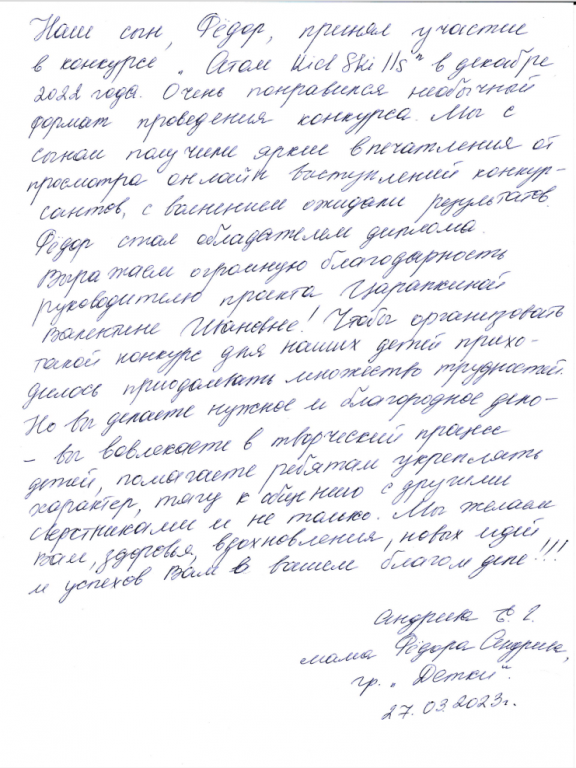 Наш сын, Фёдор, принял участие
в конкурсе „Атом Kid Skills" в декабре
2022 года. Очень понравился необычной
формат проведения конкурса. Мы с
сыном получили яркие впечатления от
просмотра онлайн выступлений конкур-
сантов, с волнением ожидали результатов.
Фёдор стал обладателем диплома.
Выражаем огромную благодарность
руководителю проекта Царапкиной
Валентине Ивановне! Чтобы организовать
такой конкурс для наших детей прихо-
дилось приодолевать множество трудностей.
Но вы делаете нужное и благородное дело-
- вы вовлекаете в творческий процесс
детей, помогаете ребятам укреплять
характер, тягу к общению с другими
сверстниками и не только. Мы желаем
Вам, здоровья, вдохновления, новых идей
и успехов Вам в вашем благом деле!!!
Андрика Е. Г.
мама Фёдора Андрика,
гр. „Детки".
27.03.2023г.